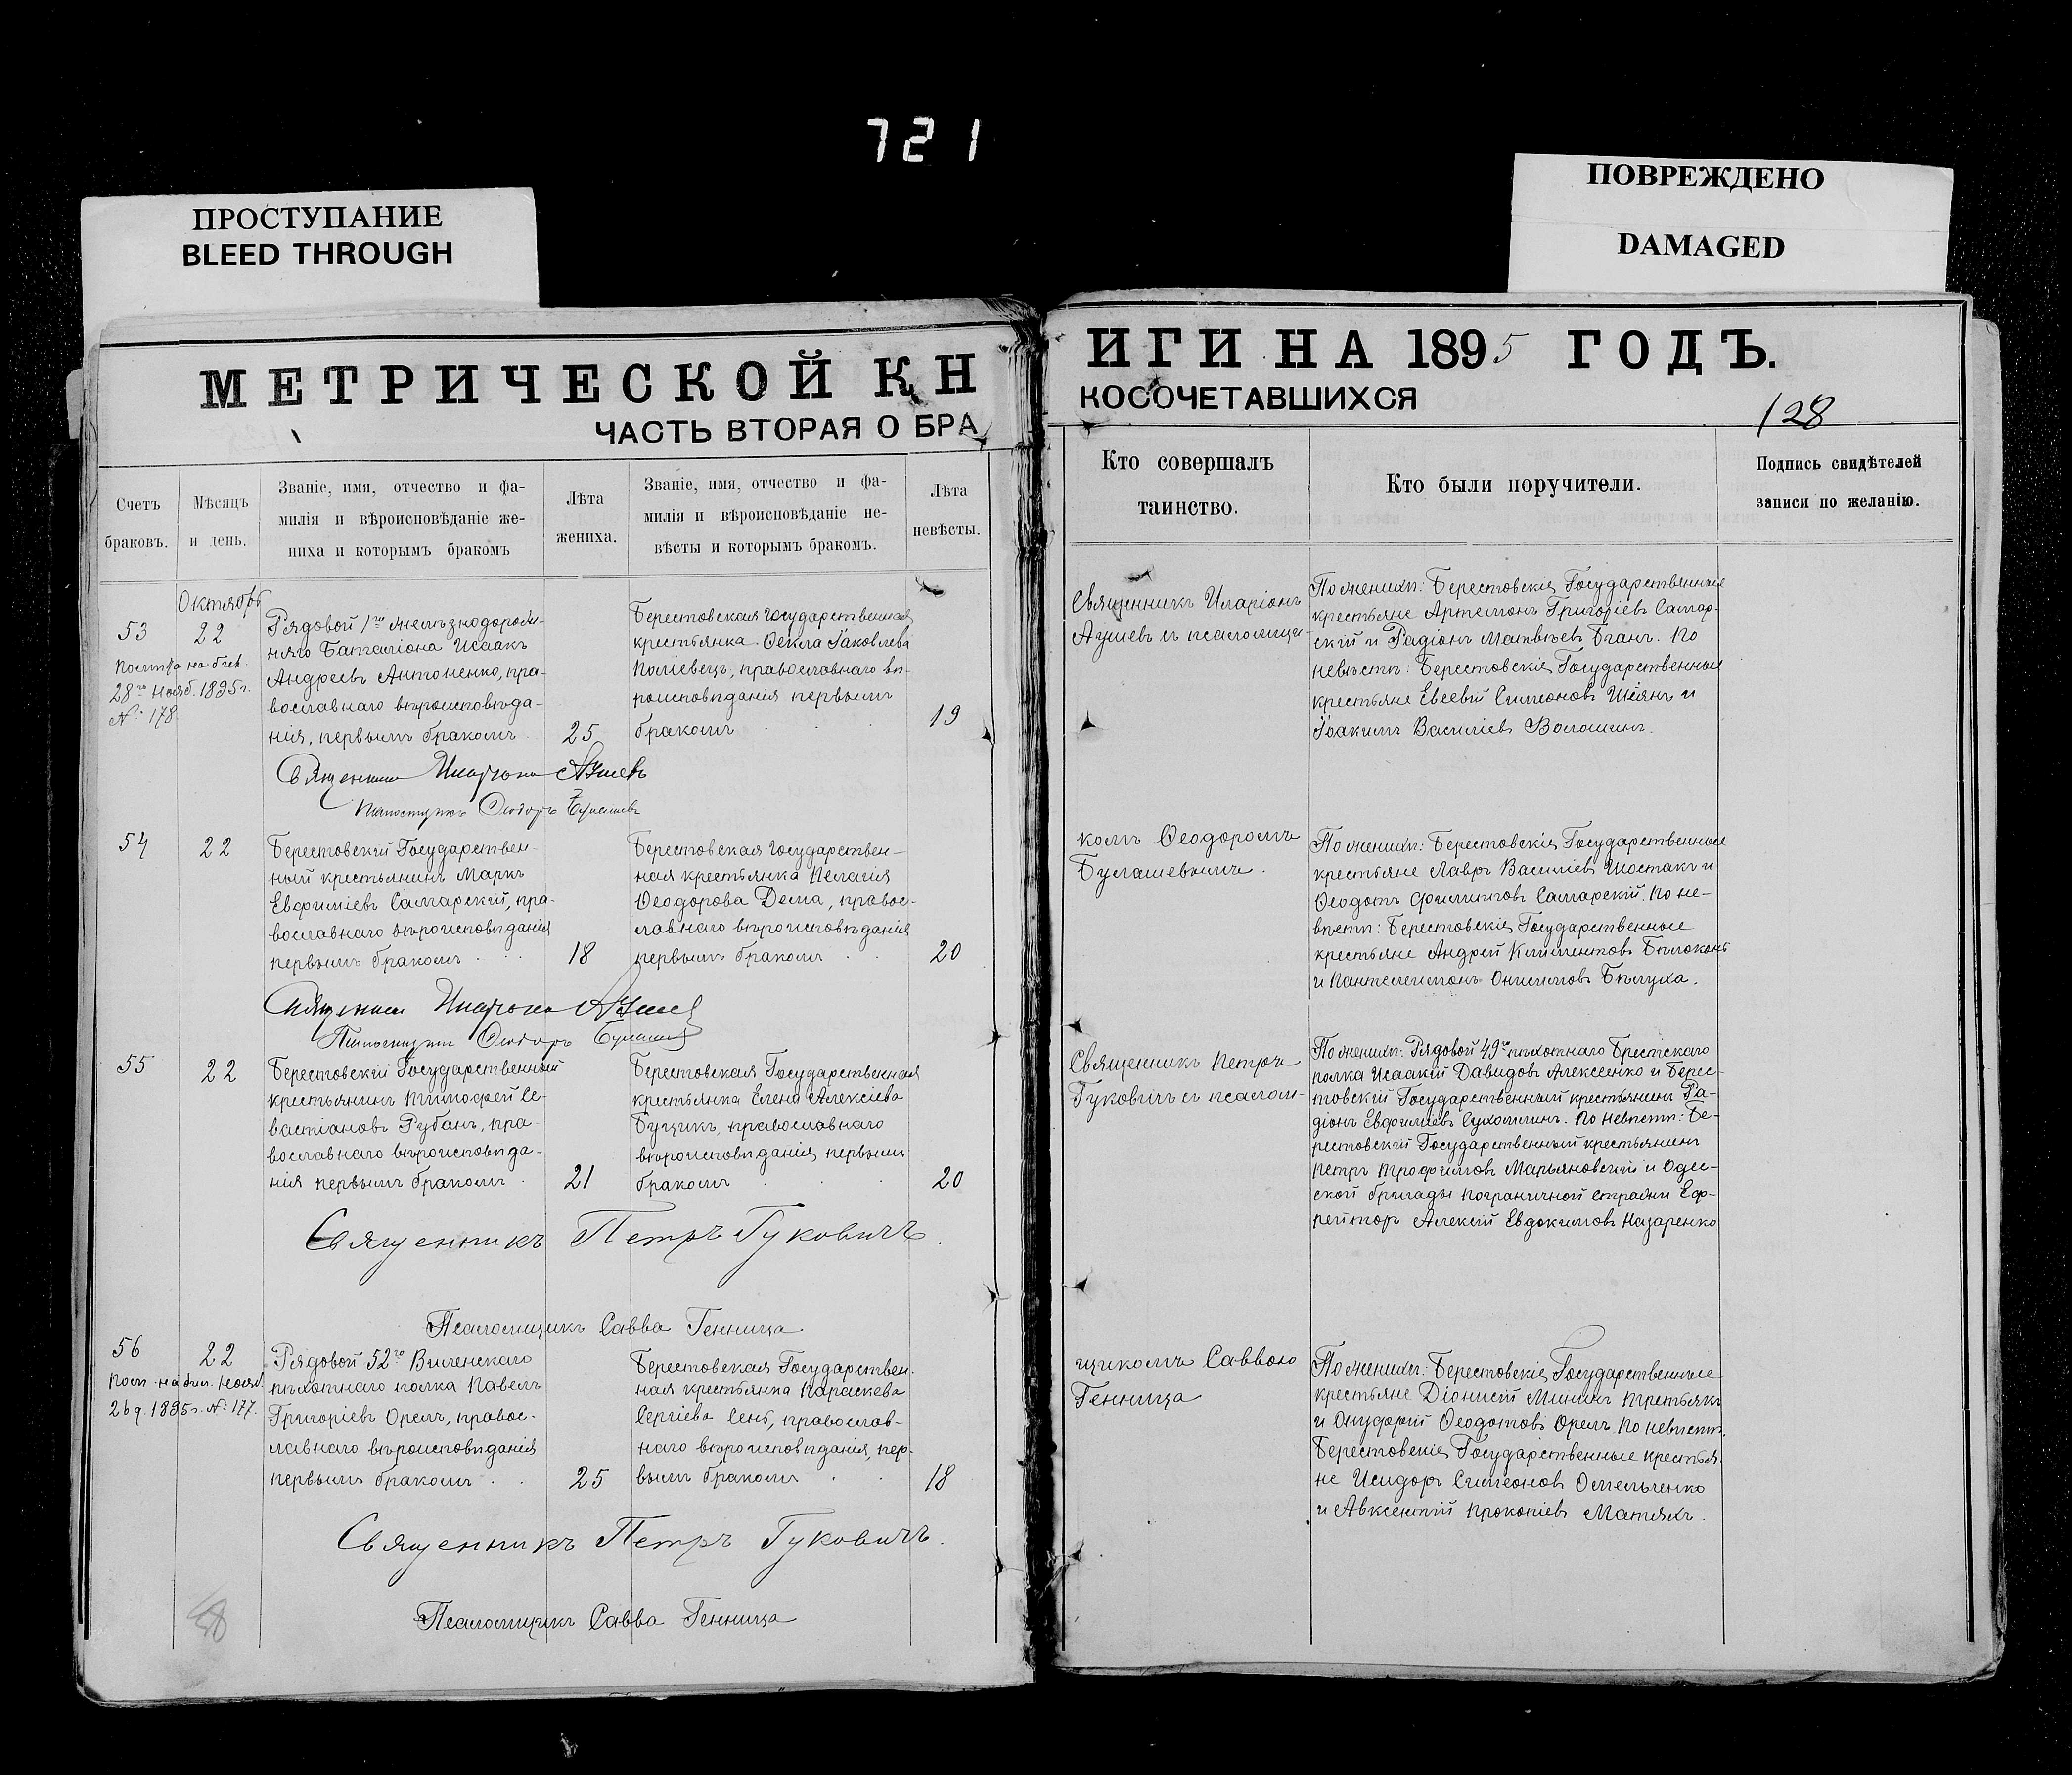 721
ПРОСТУПАНИЕ
BLEED THROUGH
ПОВРЕЖДЕНО
DAMAGED
МЕТРИЧЕСКОЙ КН
ЧАСТЬ ВТОРАЯ О БРА
ИГИ НА 1895 ГОДЪ.
КОСОЧЕТАВШИХСЯ
128
Счетъ
браковъ.
Мѣсяцъ
и день.
Званіе, имя, отчество и фа-
милія и вѣроисповѣданіе же-
ниха и которымъ бракомъ
Лѣта
жениха.
Званіе, имя, отчество и фа-
милія и вѣроисповѣданіе не-
вѣсты и которымъ бракомъ.
Лѣта
невѣсты.
Кто совершалъ
таинство.
Кто были поручители.
Подпись свидѣтелей
записи по желанію.
Октябрь
53
22
28го Нояб. 1895г.
№ 178
Рядовой 1го желѣзнодорож-
наго Баталіона Исаакъ
Андреевъ Антоненко, пра-
вославнаго вѣроисповѣда-
нія, первымъ бракомъ
25
Берестовская Государственная
крестьянка Ѳекла Іаковлева
православнаго вѣ-
роисповѣданія первымъ
бракомъ
19
Священникъ Иларіонъ
Аушевъ и псаломщи-
По женихѣ: Берестовскіе Государственные
крестьяне Артемонъ Григоріевъ Самар-
скій и Радіонъ Матвѣевъ Бганъ. По
невѣстѣ: Берестовскіе Государственные
крестьяне Евсевій Симеоновъ Шіянъ и
Іоакимъ Василіевъ Волошинъ.
Священникъ Иларіонъ Аушевъ
Псаломщикъ Ѳеодоръ Булашевъ
54
22
Берестовскій Государствен-
ный крестьянинъ Маркъ
Евфиміевъ Самарскій, пра-
вославнаго вѣроисповѣданія
первымъ бракомъ
18
Берестовская Государствен-
ная крестьянка Пелагія
Ѳеодорова Дема, правос-
лавнаго вѣроисповѣданія
первымъ бракомъ
20
комъ Ѳеодоромъ
Булашевымъ.
По женихѣ: Берестовскіе Государственные
крестьяне Лавръ Василіевъ Шостакъ и
Ѳеодотъ Филипповъ Самарскій. По не-
вѣстѣ: Берестовскіе Государственные
крестьяне Андрей Климентовъ Бѣлоконь
и Пантелеимонъ Онисимовъ Бѣлуха.
Священникъ Иларіонъ Аушевъ
Псаломщикъ Ѳеодоръ Булашевъ
55
22
Берестовскій Государственный
крестьянинъ Тимофей Се-
вастіановъ Рубанъ, пра-
вославнаго вѣроисповѣда-
нія первымъ бракомъ
21
Берестовская Государственная
крестьянка Елена Алексіева
Буцикъ, православнаго
вѣроисповѣданія первымъ
бракомъ
20
Священникъ Петръ
Гуковичъ и псалом-
По женихѣ: Рядовой 49го пѣхотнаго Брестскаго
полка Исаакій Давидовъ Алексеенко и Берес-
товскій Государственный крестьянинъ Ра-
діонъ Евфиміевъ Сухомлинъ. По невѣстѣ: Бе-
рестовскій Государственный крестьянинъ
Петръ Трофимовъ Марьяновскій и Одес-
ской бригады пограничной стражи Еф-
рейторъ Алексій Евдокимовъ Назаренко
Священникъ Петръ Гуковичъ.
Псаломщикъ Савва Генница
56
22
26 д. 1895г. № 177.
Рядовой 52го Виленскаго
пѣхотнаго полка Павелъ
Григоріевъ Орелъ, правос-
лавнаго вѣроисповѣданія
первымъ бракомъ
25
Берестовская Государствен-
ная крестьянка Параскева
Сергіева Сень, православ-
наго вѣроисповѣданія, пер-
вымъ бракомъ
18
щикомъ Саввою
Генница
По женихѣ: Берестовскіе Государственные
крестьяне Діонисій Мининъ Третьякъ
и Онуфрій Ѳеодотовъ Орелъ. По невѣстѣ.
Берестовскіе Государственные крестья-
не Исидоръ Симеоновъ Омельченко
и Авксентій Прокопіевъ Матяхъ.
Священникъ Петръ Гуковичъ.
Псаломщикъ Савва Генница